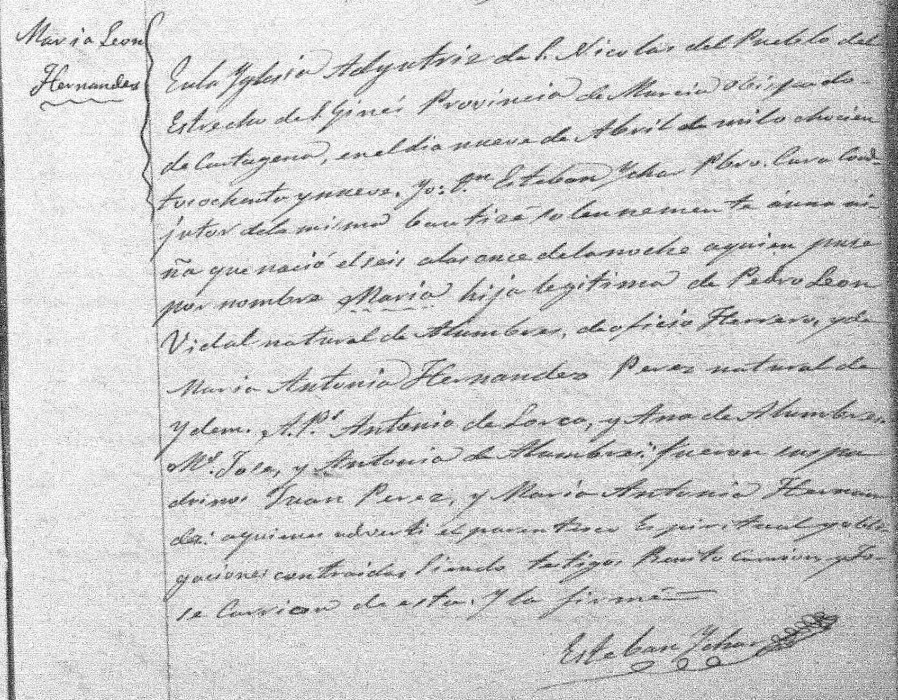 Maria Leon
Hernandes
En la Yglesia Adyutriz de S. Nicolas del Pueblo del
Estrecho de S. Ginés Provincia de Murcia obispado
de Cartagena, en el dia nueve de Abril de mil ochocien
tos ochenta y nueve. Yo: Dn. Esteban Ychar Pbro. Cura Coad-
jutor de la misma bautizé solennemente á una ni-
ña que nació el seis a las once de la noche a quien puse
por nombre Maria hija legitima de Pedro Leon
Vidal natural de Alumbres, de oficio Herrero, y de
Maria Antonia Hernandez Perez natural de
Ydem. A.Ps. Antonio de Lorca, y Ana de Alumbres.
Ms. Jose, y Antonia de Alumbres: fueron sus pa
drinos Juan Perez, y Maria Antonia Hernan
dez: a quienes adverti el parentesco Espiritual y obli
gaciones contraidas Siendo testigos Benito Carrion, y Jo-
se Carrion de esta. Y la firmé
Esteban Ychar